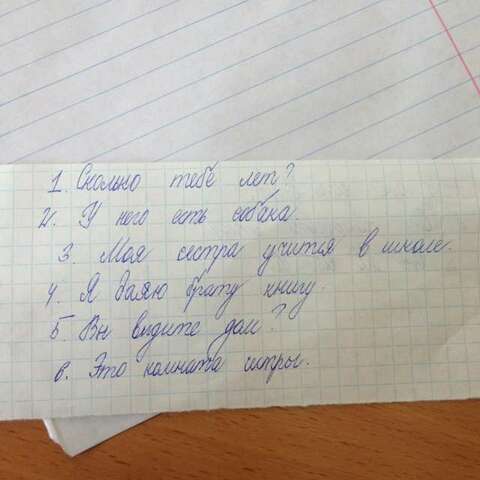 1. Сколько тебе лет?
2. У него есть собака.
3. Моя сестра учится в школе.
4. Я даю брату книгу.
5. Вы видите дом?
6. Это комната сестры.